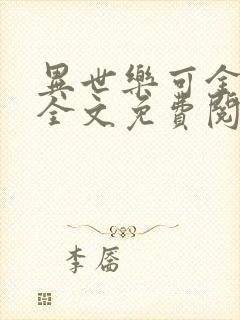 異世樂可全
全文免費閱
李層